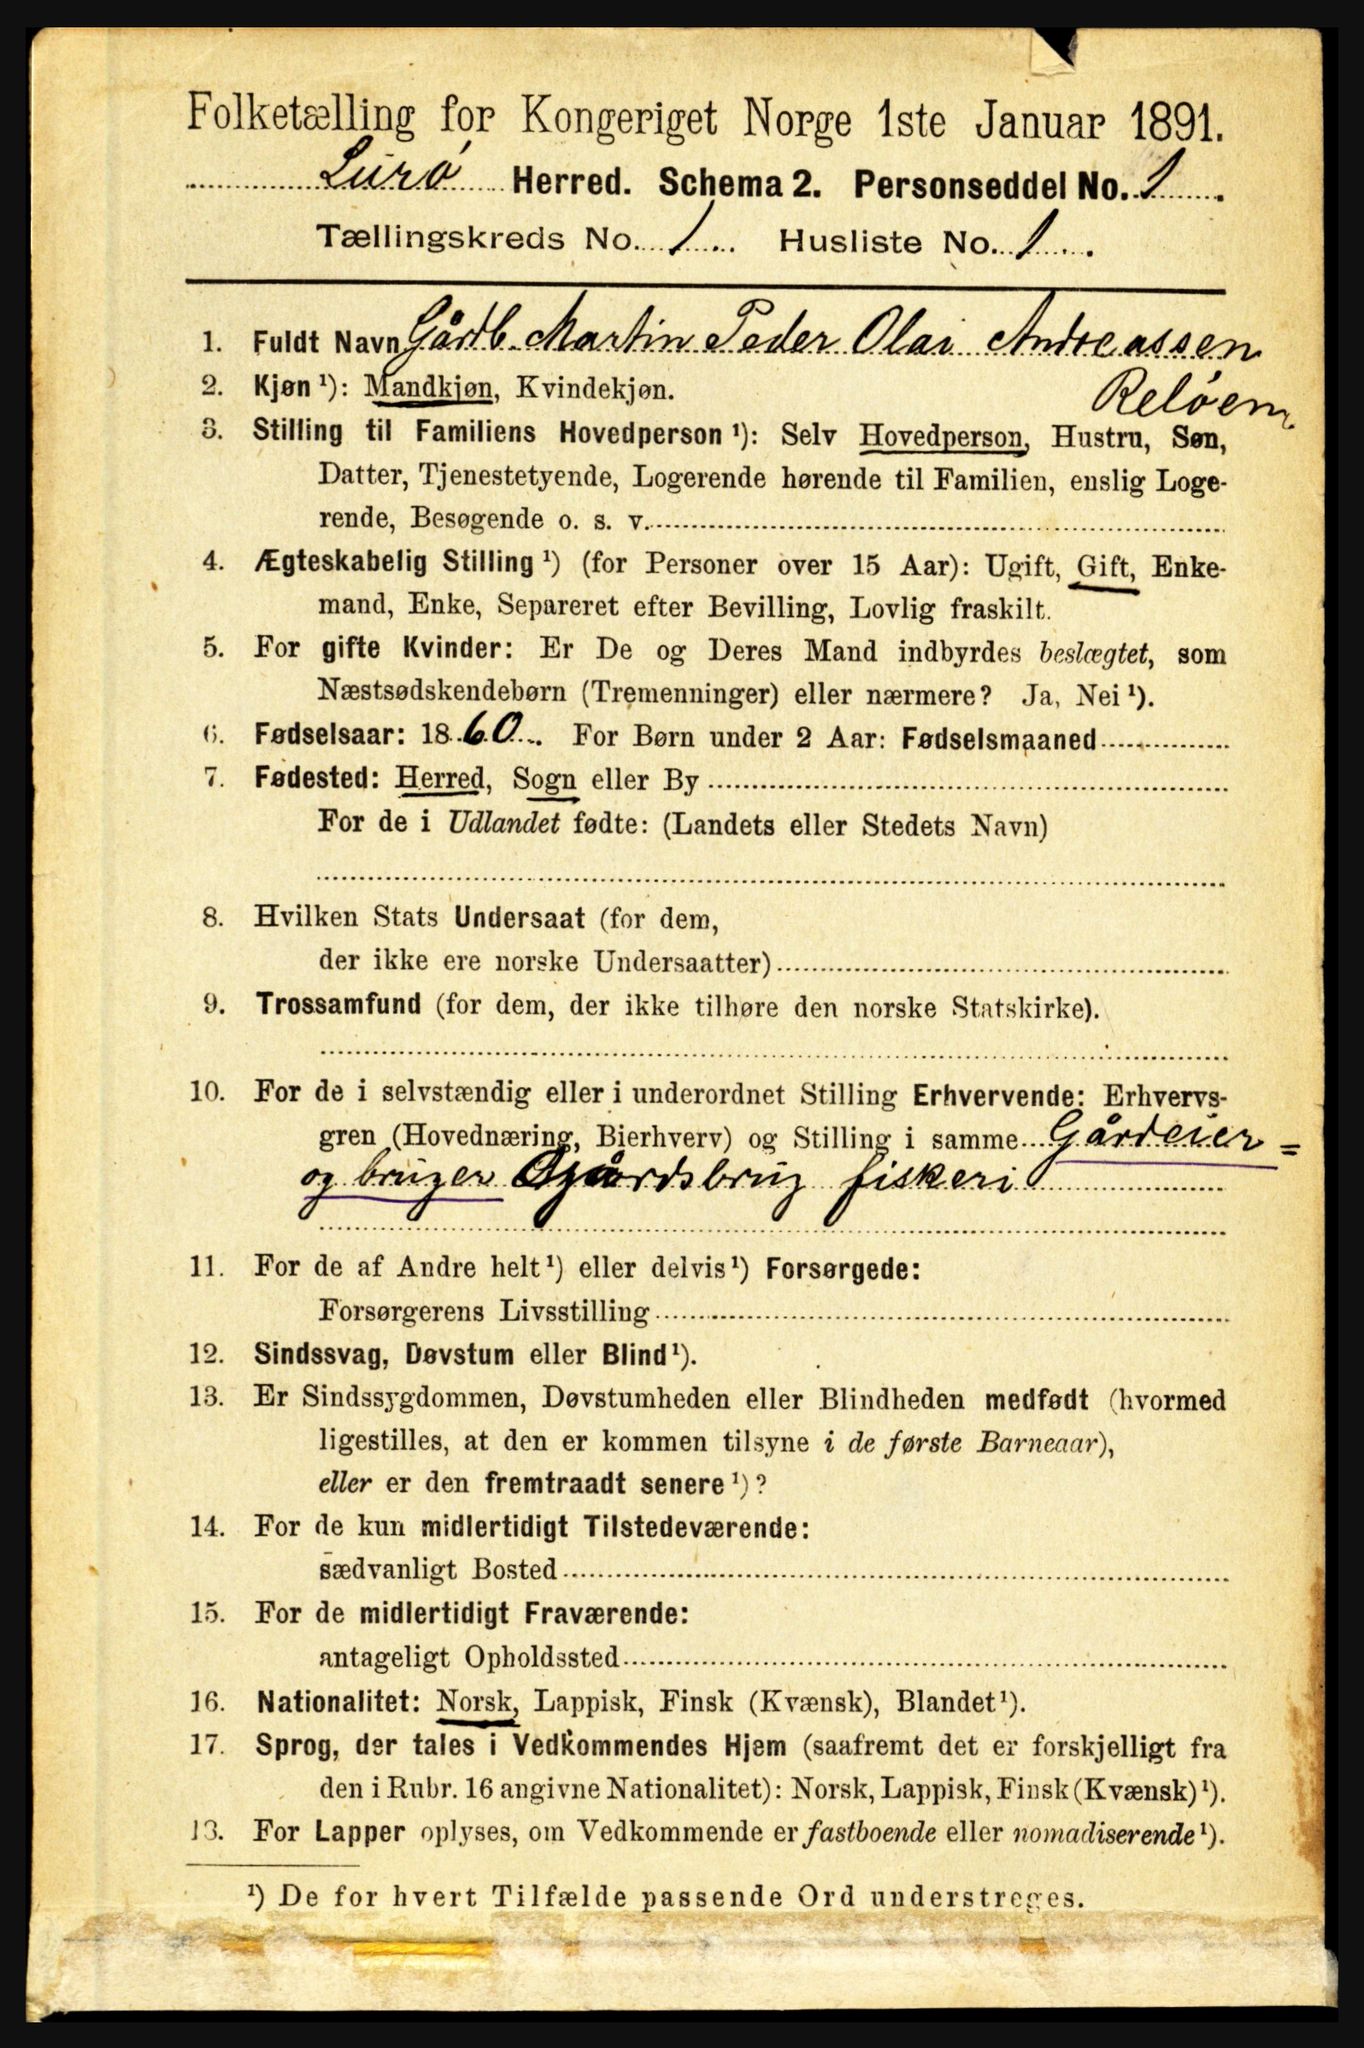 Folketælling for Kongeriget Norge 1ste Januar 1891.
Lurø Herred. Schema 2. Personseddel No. 1.
Tællingskreds No. 1. Husliste No. 1.
1. Fuldt Navn Gårdb. Martin Peder Olai Andreassen
Reløen
2. Kjøn ¹): Mandkjøn, Kvindekjøn.
3. Stilling til Familiens Hovedperson ¹): Selv Hovedperson, Hustru, Søn,
Datter, Tjenestetyende, Logerende hørende til Familien, enslig Loge-
rende, Besøgende o. s. v.
4. Ægteskabelig Stilling ¹) (for Personer over 15 Aar): Ugift, Gift, Enke-
mand, Enke, Separeret efter Bevilling, Lovlig fraskilt.
5. For gifte Kvinder: Er De og Deres Mand indbyrdes beslægtet, som
Næstsødskendebørn (Tremenninger) eller nærmere? Ja, Nei ¹).
6. Fødselsaar: 1860. For Børn under 2 Aar: Fødselsmaaned
7. Fødested: Herred, Sogn eller By
For de i Udlandet fødte: (Landets eller Stedets Navn)
8. Hvilken Stats Undersaat (for dem,
der ikke ere norske Undersaatter)
9. Trossamfund (for dem, der ikke tilhøre den norske Statskirke).
10. For de i selvstændig eller i underordnet Stilling Erhvervende: Erhvervs-
gren (Hovednæring, Bierhverv) og Stilling i samme Gårdeier=
og bruger Gårdsbrug fiskeri
11. For de af Andre helt ¹) eller delvis ¹) Forsørgede:
Forsørgerens Livsstilling
12. Sindssvag, Døvstum eller Blind ¹).
13. Er Sindssygdommen, Døvstumheden eller Blindheden medfødt (hvormed
ligestilles, at den er kommen tilsyne i de første Barneaar),
eller er den fremtraadt senere ¹)?
14. For de kun midlertidigt Tilstedeværende:
sædvanligt Bosted
15. For de midlertidigt Fraværende:
antageligt Opholdssted
16. Nationalitet: Norsk, Lappisk, Finsk (Kvænsk), Blandet ¹).
17. Sprog, der tales i Vedkommendes Hjem (saafremt det er forskjelligt fra
den i Rubr. 16 angivne Nationalitet): Norsk, Lappisk, Finsk (Kvænsk) ¹).
18. For Lapper oplyses, om Vedkommende er fastboende eller nomadiserende ¹).
¹) De for hvert Tilfælde passende Ord understreges.